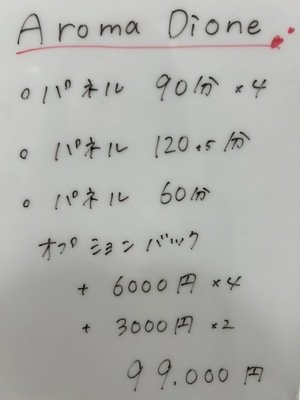 Aroma Dione.
○ パネル 90分 ×4
○ パネル 120×5分
○ パネル 60分
オプションバック
+ 6000円 ×4
+ 3000円 ×2
99.000円